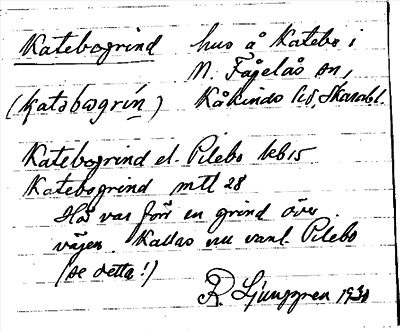 Katebogrind hus å Katebo i
N. Fågelås sn,
(katəbogrín) Kåkinds hd, Skarabl.
Katebogrind el. Pilebo leb 15
Katebogrind mtl 28
Här var förr en grind över
vägen. Kallas nu vanl. Pilebo
(se detta!)
R. Ljunggren 1930